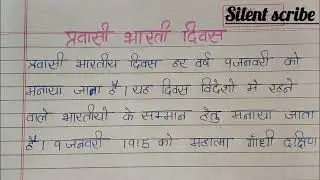 Silent scribe
प्रवासी भारती दिवस
प्रवासी भारतीय दिवस हर वर्ष 9जनवरी को
मनाया जाता है। यह दिवस विदेशो मे रहने
वाले भारतीयों के सम्मान हेतु मनाया जाता
है। 9 जनवरी 1915 को महात्मा गाँधी दक्षिण